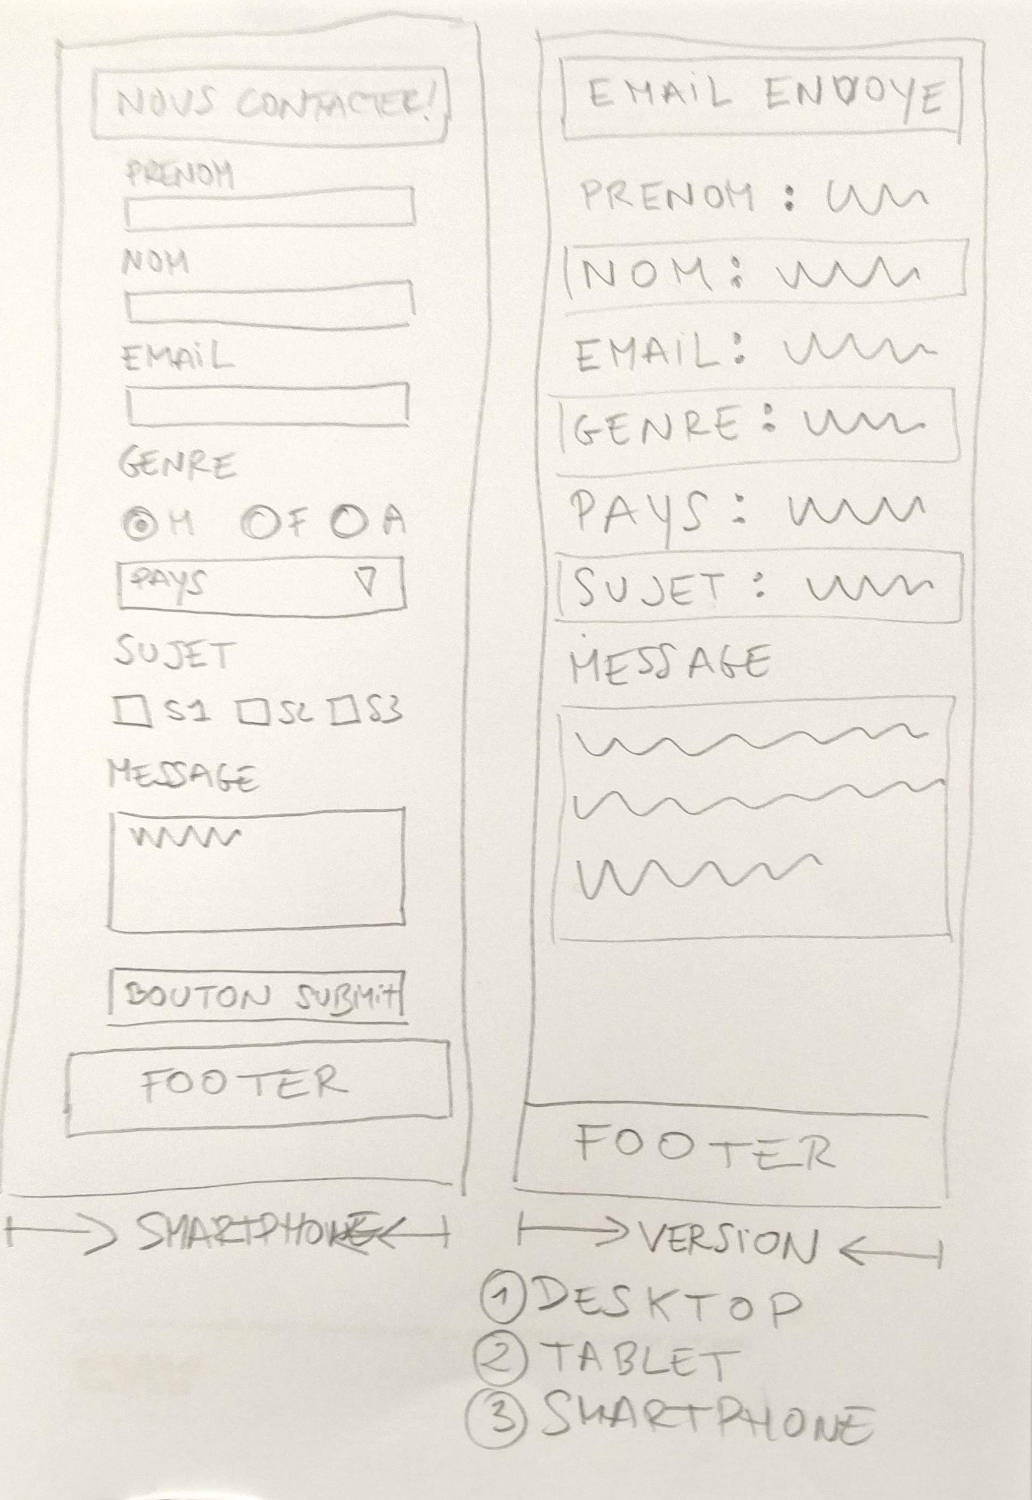 NOUS CONTACTER!
PRENOM
NOM
EMAIL
GENRE
M F A
PAYS
SUJET
S1 S2 S3
MESSAGE
BOUTON SUBMIT
FOOTER
SMARTPHONE
EMAIL ENVOYE
PRENOM :
NOM :
EMAIL :
GENRE :
PAYS :
SUJET :
MESSAGE
FOOTER
VERSION
1 DESKTOP
2 TABLET
3 SMARTPHONE